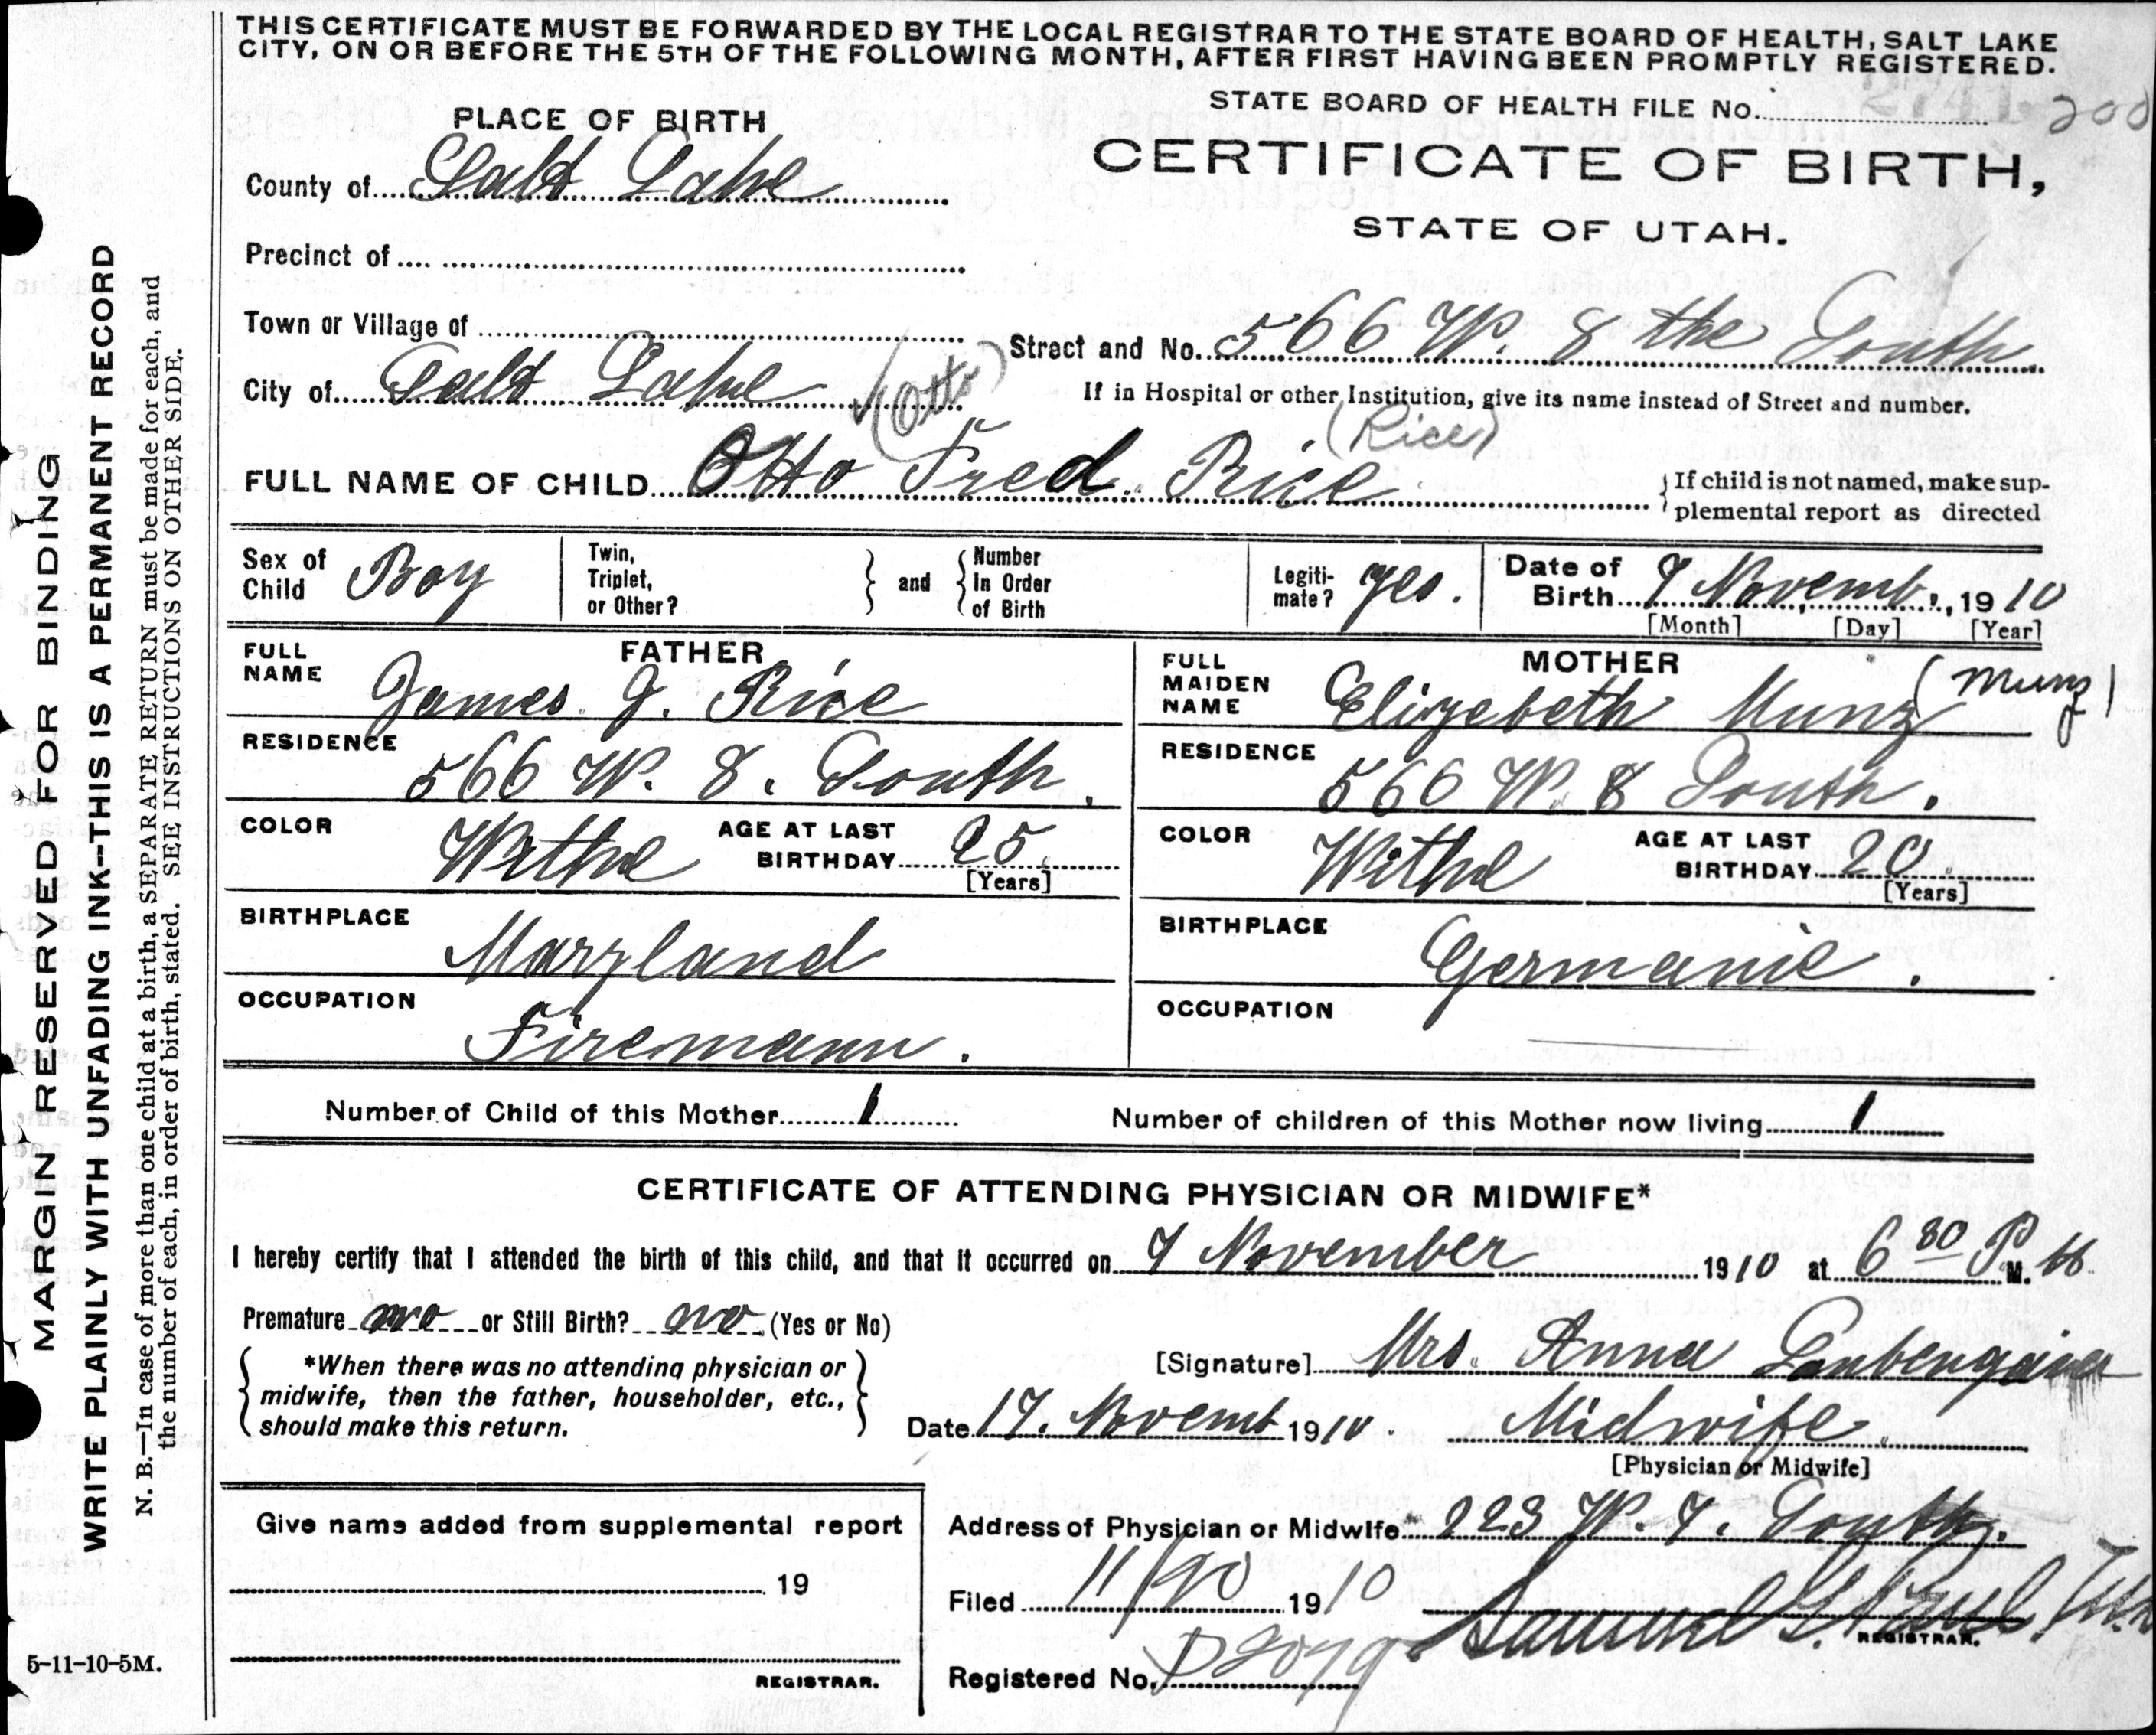 THIS CERTIFICATE MUST BE FORWARDED BY THE LOCAL REGISTRAR TO THE STATE BOARD OF HEALTH, SALT LAKE
CITY, ON OR BEFORE THE 5TH OF THE FOLLOWING MONTH, AFTER FIRST HAVING BEEN PROMPTLY REGISTERED.
PLACE OF BIRTH
STATE BOARD OF HEALTH FILE No. 200
County of Salt Lake
CERTIFICATE OF BIRTH,
STATE OF UTAH.
Precinct of
Town or Village of
Street and No. 566 W. 8 the South
City of Salt Lake (Otto)
If in Hospital or other Institution, give its name instead of Street and number.
(Rice)
FULL NAME OF CHILD Otto Fred Rice
If child is not named, make sup-
plemental report as directed
Sex of Child Boy
Twin, Triplet, or Other?
and
Number in Order of Birth
Legiti-mate? yes.
Date of Birth 7 Novemb., 1910
[Month] [Day] [Year]
FATHER
FULL NAME James J. Rice
RESIDENCE 566 W. 8. South.
COLOR Withe
AGE AT LAST BIRTHDAY 25.
[Years]
BIRTHPLACE Maryland
OCCUPATION Firemann.
MOTHER
FULL MAIDEN NAME Elizebeth Munz (Munz)
RESIDENCE 566 W. 8 South.
COLOR Withe
AGE AT LAST BIRTHDAY 20.
[Years]
BIRTHPLACE Germanie.
OCCUPATION
Number of Child of this Mother 1
Number of children of this Mother now living 1
CERTIFICATE OF ATTENDING PHYSICIAN OR MIDWIFE*
I hereby certify that I attended the birth of this child, and that it occurred on 7 November 1910 at 6 30 P M.
Premature no or Still Birth? no (Yes or No)
*When there was no attending physician or
midwife, then the father, householder, etc.,
should make this return.
[Signature] Mrs. Anna
Date 17. Novemb 1910. Midwife.
[Physician or Midwife]
Give name added from supplemental report
19
REGISTRAR.
Address of Physician or Midwife 223 W. 7. South.
Filed 11/ 1910 Samuel G.
REGISTRAR.
Registered No.
5-11-10-5M.
MARGIN RESERVED FOR BINDING
WRITE PLAINLY WITH UNFADING INK--THIS IS A PERMANENT RECORD
N. B.—In case of more than one child at a birth, a SEPARATE RETURN must be made for each, and
the number of each, in order of birth, stated. SEE INSTRUCTIONS ON OTHER SIDE.